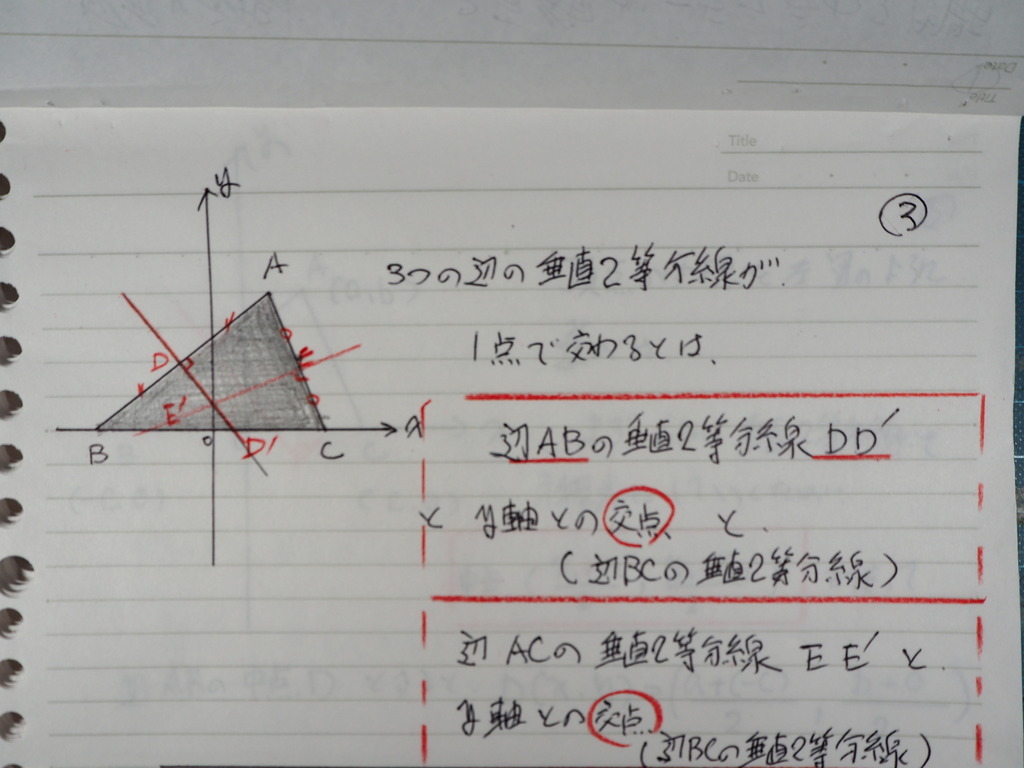 Date
Title
Title
Date
③
3つの辺の垂直2等分線が
1点で交わるとは、
辺ABの垂直2等分線DD′
と y軸との交点 と、
(辺BCの垂直2等分線)
辺ACの垂直2等分線 EE′と、
y軸との交点
(辺BCの垂直2等分線)
y
A
D
E
E′
B
o
D′
C
x